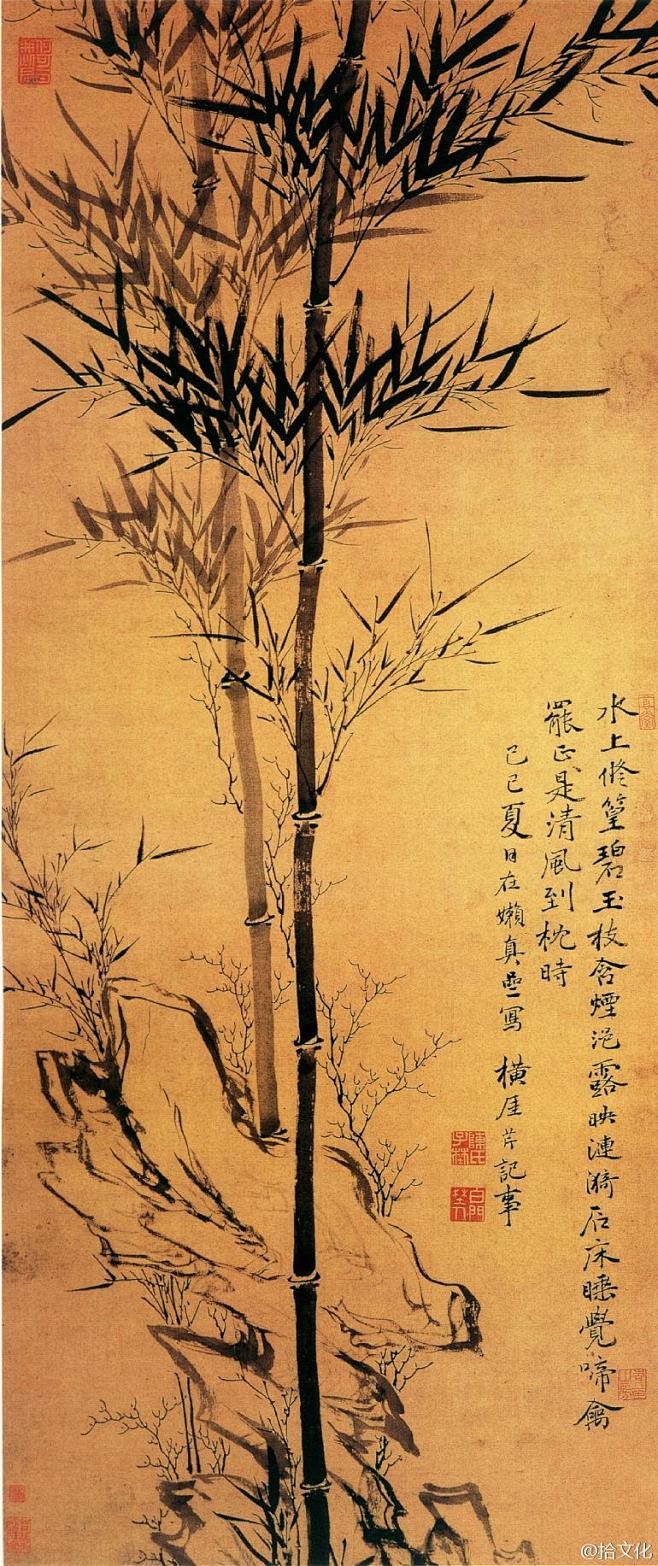 水上修篁碧玉枝含煙浥露映漣漪石床睡覺啼禽
罷正是清風到枕時
己巳夏日在嬾真寫 橫厓芹記事
陳氏子埜
白門埜人
@拾文化